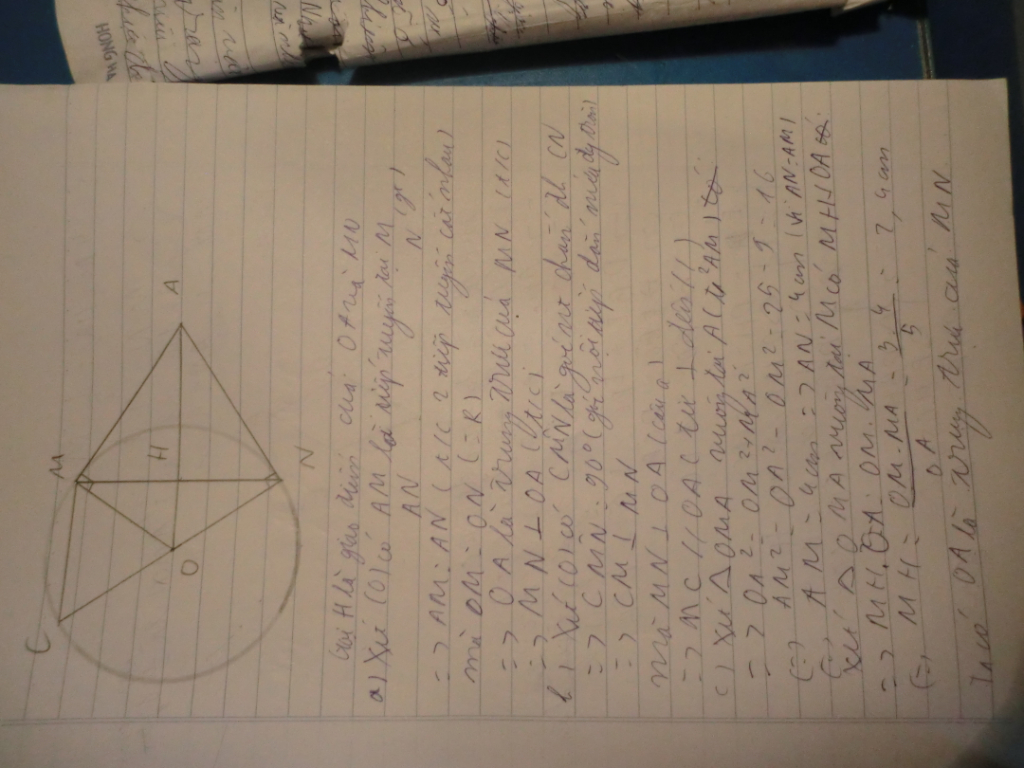 C
M
H
A
O
N
Gọi H là giao điểm của OA và MN
a) Xét (O) có AM là tiếp tuyến tại M
AN N (gt)
=> AM = AN (t/c 2 tiếp tuyến cắt nhau)
mà OM = ON (= R)
=> OA là trung trực của MN (t/c)
=> MN ⊥ OA (đ/c)
b) Xét (O) có CMN là góc nt chắn đk CN
=> CMN = 90° (góc nội tiếp chắn nửa đường tròn)
=> CM ⊥ MN
mà MN ⊥ OA (câu a)
=> MC // OA (từ ⊥ đến //)
c) Xét Δ OMA vuông tại
=> OA² = OM² + MA²
AM² = OA² - OM² = 25 - 9 = 16
(=) AM = 4cm => AN = 4cm (vì AN = AM)
(=) Xét Δ OMA vuông tại M có MH ⊥ OA
=> MH. OA = OM. MA
(=) MH = OM. MA / OA = 3.4 / 5 = 2,4cm
Ta có OA là trung trực của MN